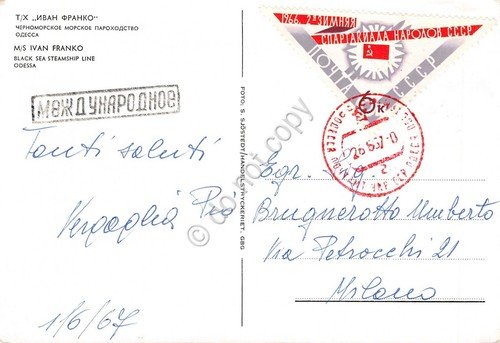 Т/Х „ИВАН ФРАНКО"
ЧЕРНОМОРСКОЕ МОРСКОЕ ПАРОХОДСТВО
ОДЕССА
M/S IVAN FRANKO
BLACK SEA STEAMSHIP LINE
ODESSA
МЕЖДУНАРОДНОЕ
Tanti saluti
Pio
1/6/67
FOTO: S. SJÖSTEDT/HANDELSTRYCKERIET, GBG
do not copy
1966. 2-я ЗИМНЯЯ
СПАРТАКИАДА НАРОДОВ СССР
ПОЧТА СССР
6к
ОДЕССА
2
Egr. Sig.
Brugnerotto Umberto
Via Petrocchi 21
Milano